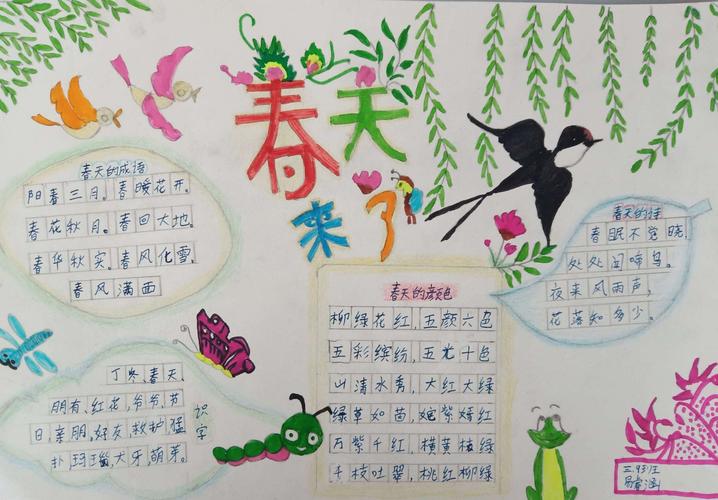 春天
来了
春天的成语
阳春三月。春暖花开。
春花秋月。春回大地。
春华秋实。春风化雪。
春风满面
春天的诗
春眠不觉晓,
处处闻啼鸟。
夜来风雨声,
花落知多少。
春天的颜色
柳绿花红,五颜六色
五彩缤纷,五光十色
山清水秀,大红大绿
绿草如茵,姹紫嫣红
万紫千红,横黄枝绿
千枝吐翠,桃红柳绿
丁冬、春天、
朋友、红花、爷爷、节
日、亲朋、好友、救护、猛
扑、玛瑙、大牙、萌芽。
识字